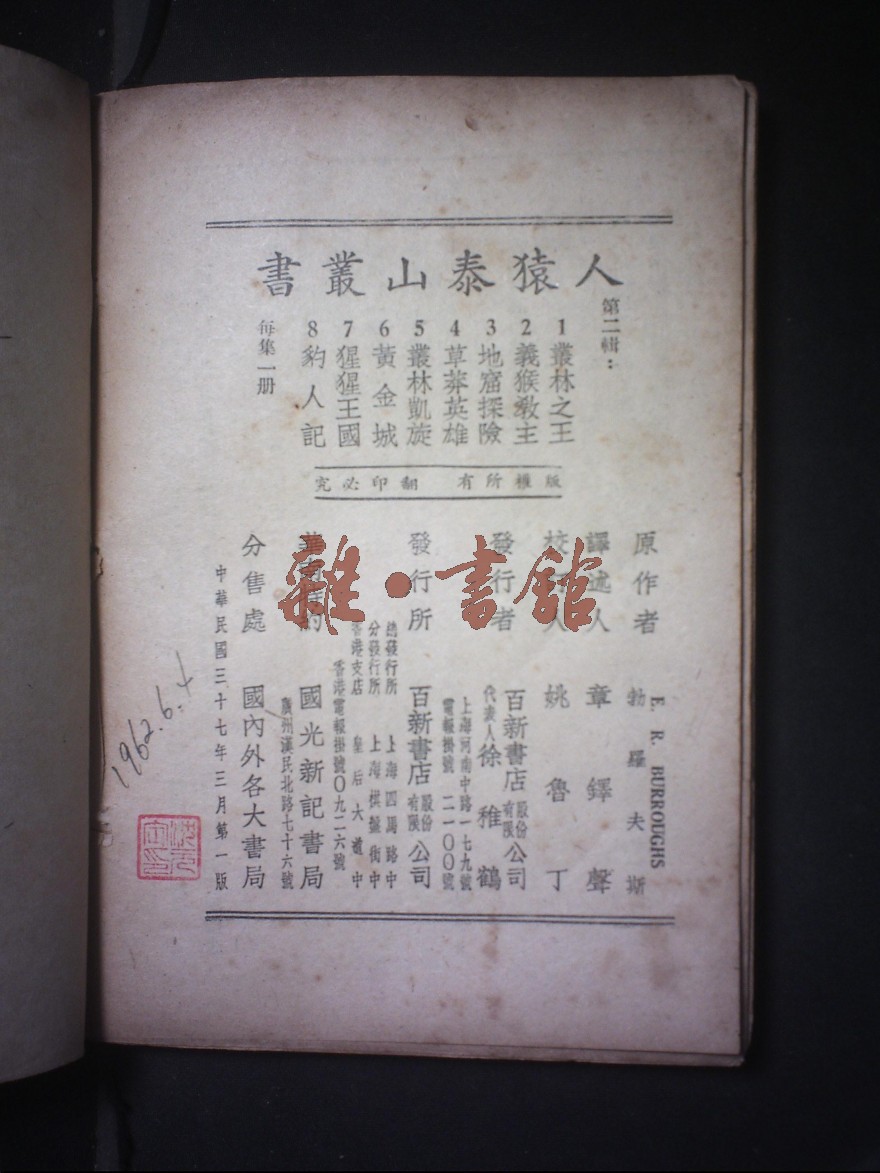 人猿泰山叢書
第二輯：
1 叢林之王
2 義猴教主
3 地窟探險
4 草莽英雄
5 叢林凱旋
6 黃金城
7 猩猩王國
8 豹人記
每集一册
版權所有 翻印必究
原作者 E. R. BURROUGHS 勃羅夫斯
譯述人 章鐸聲
校 人 姚魯丁
發行者 百新書店股份有限公司
代表人 徐稚鶴
上海河南中路一七九號
電報掛號 二一〇〇號
發行所 百新書店股份有限公司
總發行所 上海四馬路中
分發行所 上海棋盤街中
香港支店 皇后大道中
香港電報掛號〇九二六號
國光新記書局
廣州漢民北路七十六號
分售處 國內外各大書局
中華民國三十七年三月第一版
1962.6.4
雜·書館